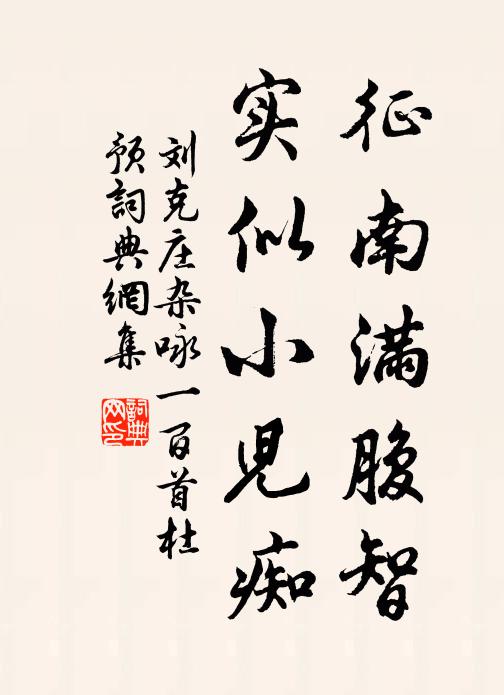 征南满腹智
实似小児痴
刘克庄杂咏一百首杜
预詞典網集
詞典
网印